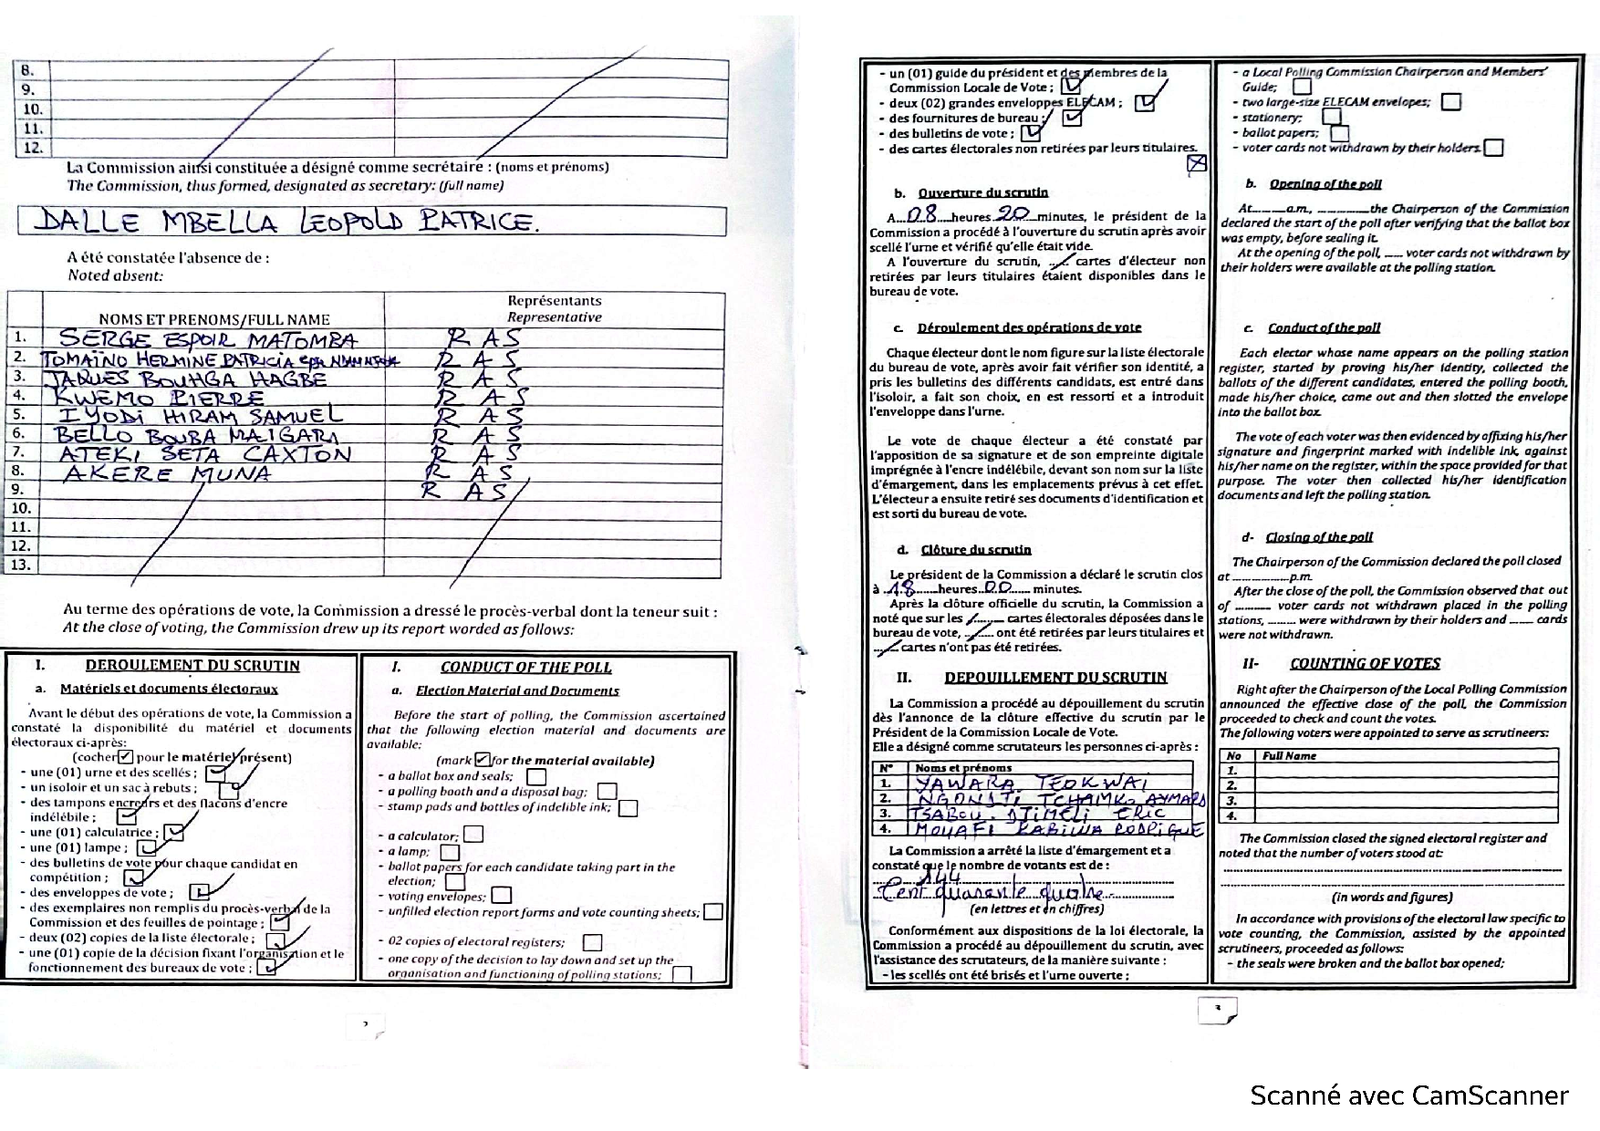 8.
9.
10.
11.
12.
La Commission ainsi constituée a désigné comme secrétaire : (noms et prénoms)
The Commission, thus formed, designated as secretary: (full name)
DALLE MBELLA LEOPOLD PATRICE.
A été constatée l'absence de :
Noted absent:
NOMS ET PRENOMS/FULL NAME
Représentants
Representative
1. SERGE ESPOIR MATOMBA R A S
2. TOMAÏNO HERMINE PATRICIA epse NDAM NJOYA R A S
3. JAQUES BOUHGA HAGBE R A S
4. KWEMO PIERRE R A S
5. IYODI HIRAM SAMUEL R A S
6. BELLO BOUBA MAIGARI R A S
7. ATEKI SETA CAXTON R A S
8. AKERE MUNA R A S
9. R A S
10.
11.
12.
13.
Au terme des opérations de vote, la Commission a dressé le procès-verbal dont la teneur suit :
At the close of voting, the Commission drew up its report worded as follows:
I. DEROULEMENT DU SCRUTIN
a. Matériels et documents électoraux
Avant le début des opérations de vote, la Commission a
constaté la disponibilité du matériel et documents
électoraux ci-après:
(cocher ✓ pour le matériel présent)
- une (01) urne et des scellés ;
- un isoloir et un sac à rebuts ;
- des tampons encreurs et des flacons d'encre
indélébile ;
- une (01) calculatrice ;
- une (01) lampe ;
- des bulletins de vote pour chaque candidat en
compétition ;
- des enveloppes de vote ;
- des exemplaires non remplis du procès-verbal de la
Commission et des feuilles de pointage ;
- deux (02) copies de la liste électorale ;
- une (01) copie de la décision fixant l'organisation et le
fonctionnement des bureaux de vote ;
I. CONDUCT OF THE POLL
a. Election Material and Documents
Before the start of polling, the Commission ascertained
that the following election material and documents are
available:
(mark ✓ for the material available)
- a ballot box and seals;
- a polling booth and a disposal bag;
- stamp pads and bottles of indelible ink;
- a calculator;
- a lamp;
- ballot papers for each candidate taking part in the
election;
- voting envelopes;
- unfilled election report forms and vote counting sheets;
- 02 copies of electoral registers;
- one copy of the decision to lay down and set up the
organisation and functioning of polling stations;
2
- un (01) guide du président et des membres de la
Commission Locale de Vote ;
- deux (02) grandes enveloppes ELECAM ;
- des fournitures de bureau ;
- des bulletins de vote ;
- des cartes électorales non retirées par leurs titulaires.
b. Ouverture du scrutin
A 08 heures 20 minutes, le président de la
Commission a procédé à l'ouverture du scrutin après avoir
scellé l'urne et vérifié qu'elle était vide.
A l'ouverture du scrutin, ../.. cartes d'électeur non
retirées par leurs titulaires étaient disponibles dans le
bureau de vote.
c. Déroulement des opérations de vote
Chaque électeur dont le nom figure sur la liste électorale
du bureau de vote, après avoir fait vérifier son identité, a
pris les bulletins des différents candidats, est entré dans
l'isoloir, a fait son choix, en est ressorti et a introduit
l'enveloppe dans l'urne.
Le vote de chaque électeur a été constaté par
l'apposition de sa signature et de son empreinte digitale
imprégnée à l'encre indélébile, devant son nom sur la liste
d'émargement, dans les emplacements prévus à cet effet.
L'électeur a ensuite retiré ses documents d'identification et
est sorti du bureau de vote.
d. Clôture du scrutin
Le président de la Commission a déclaré le scrutin clos
à 18 heures 00 minutes.
Après la clôture officielle du scrutin, la Commission a
noté que sur les /...... cartes électorales déposées dans le
bureau de vote, ../.. ont été retirées par leurs titulaires et
../.. cartes n'ont pas été retirées.
II. DEPOUILLEMENT DU SCRUTIN
La Commission a procédé au dépouillement du scrutin
dès l'annonce de la clôture effective du scrutin par le
Président de la Commission Locale de Vote.
Elle a désigné comme scrutateurs les personnes ci-après :
N° Noms et prénoms
1. YAWARA TEOKWAI
2. TCHAMKO AYMARD
3. TSABOU DJIMELI ERIC
4. MOUAFI KABIWA RODRIGUE
La Commission a arrêté la liste d'émargement et a
constaté que le nombre de votants est de :
144
Cent quarante quatre
(en lettres et en chiffres)
Conformément aux dispositions de la loi électorale, la
Commission a procédé au dépouillement du scrutin, avec
l'assistance des scrutateurs, de la manière suivante :
- les scellés ont été brisés et l'urne ouverte ;
- a Local Polling Commission Chairperson and Members'
Guide;
- two large-size ELECAM envelopes;
- stationery;
- ballot papers;
- voter cards not withdrawn by their holders
b. Opening of the poll
At..........a.m, ..............the Chairperson of the Commission
declared the start of the poll after verifying that the ballot box
was empty, before sealing it.
At the opening of the poll, ..... voter cards not withdrawn by
their holders were available at the polling station.
c. Conduct of the poll
Each elector whose name appears on the polling station
register, started by proving his/her identity, collected the
ballots of the different candidates, entered the polling booth,
made his/her choice, came out and then slotted the envelope
into the ballot box.
The vote of each voter was then evidenced by affixing his/her
signature and fingerprint marked with indelible ink, against
his/her name on the register, within the space provided for that
purpose. The voter then collected his/her identification
documents and left the polling station.
d- Closing of the poll
The Chairperson of the Commission declared the poll closed
at ................p.m.
After the close of the poll, the Commission observed that out
of .......... voter cards not withdrawn placed in the polling
stations, ........ were withdrawn by their holders and ...... cards
were not withdrawn.
II- COUNTING OF VOTES
Right after the Chairperson of the Local Polling Commission
announced the effective close of the poll, the Commission
proceeded to check and count the votes.
The following voters were appointed to serve as scrutineers:
No Full Name
1.
2.
3.
4.
The Commission closed the signed electoral register and
noted that the number of voters stood at:
(in words and figures)
In accordance with provisions of the electoral law specific to
vote counting, the Commission, assisted by the appointed
scrutineers, proceeded as follows:
- the seals were broken and the ballot box opened;
3
Scanné avec CamScanner